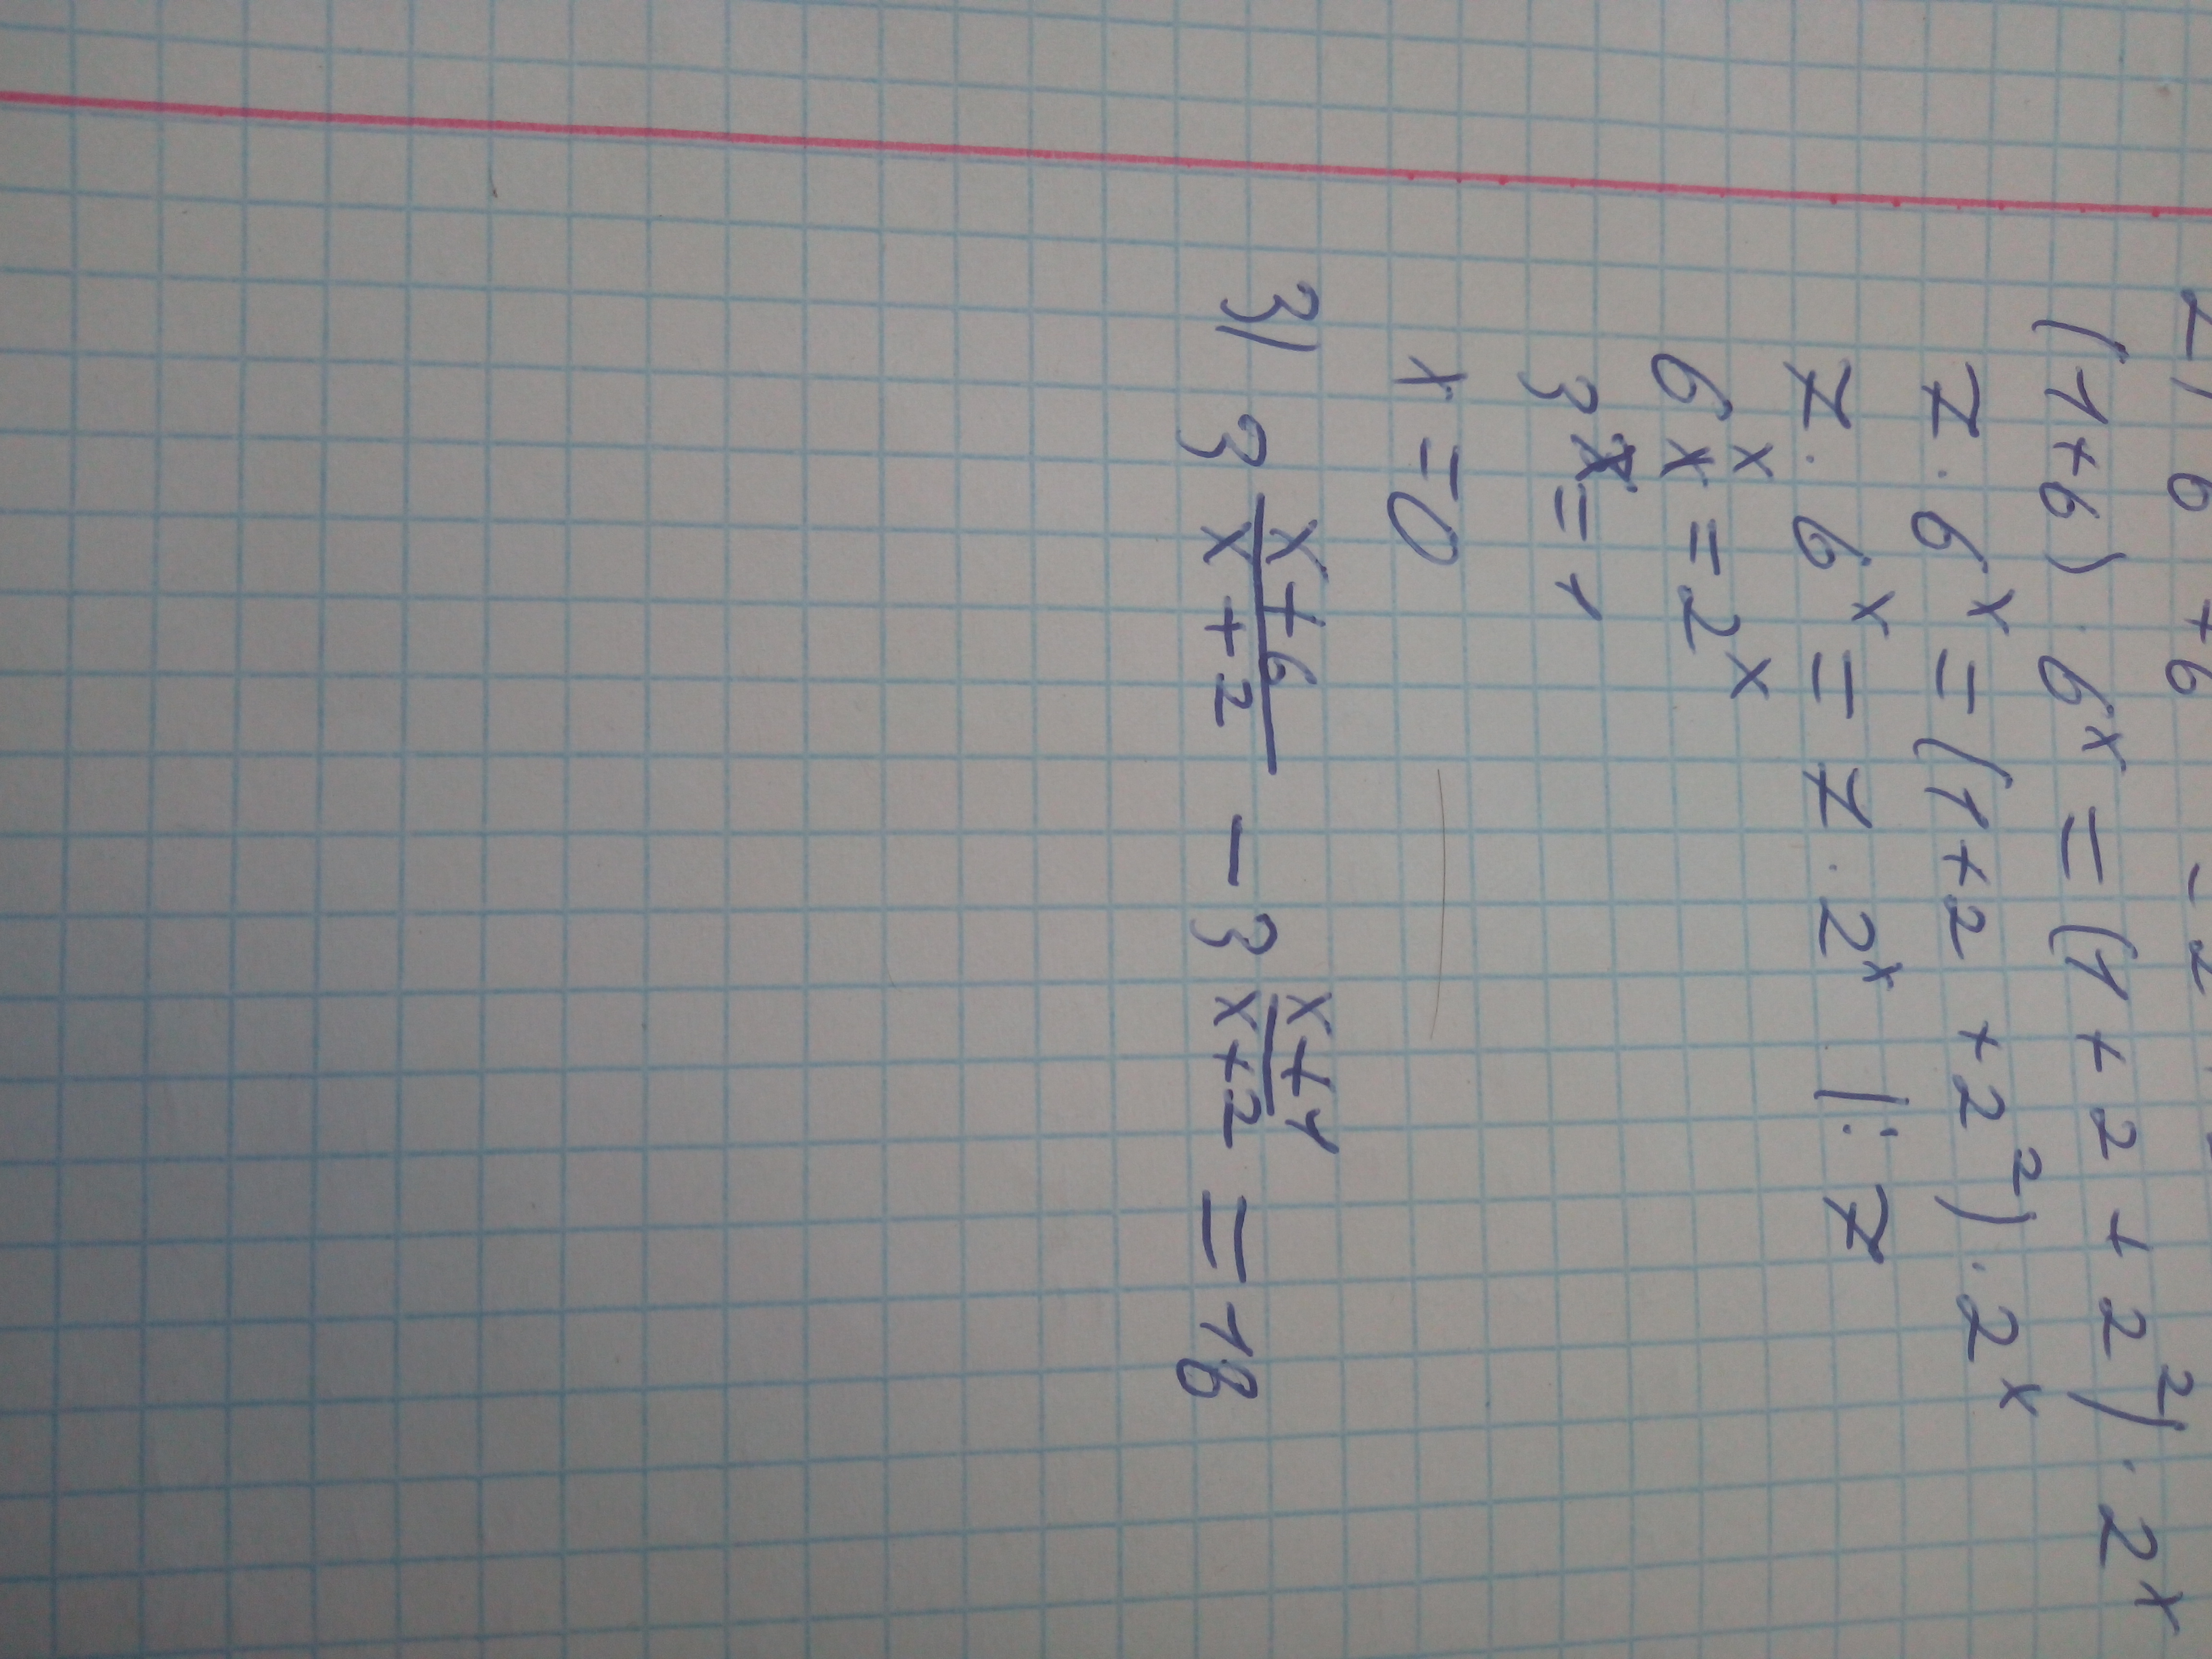 (1+6)·6^x = (1+2+2²)·2^x
7·6^x = (1+2+2²)·2^x
7·6^x = 7·2^x |:7
6^x = 2^x
3^x = 1
x = 0
3) 3^((x+6)/(x+2)) - 3^((x+1)/(x+2)) = 18